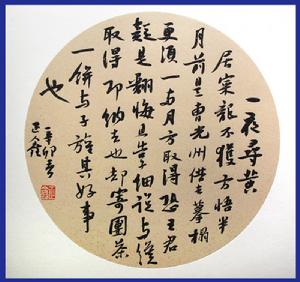 一夜尋黄
居寀龍不獲方悟半
月前是曹光州借去摹榻
更須一兩月方取得恐王君
疑是翻悔且告子細說与纔
取得即納去也却寄團茶
一餅与之旌其好事
也
辛卯春